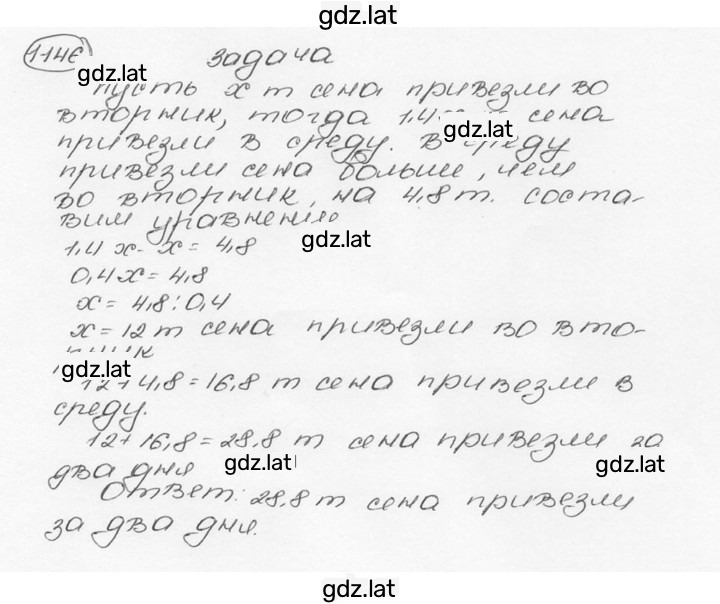 gdz.lat
1146 задача
gdz.lat
пусть x т сена привезли во
вторник, тогда 1,4 сена
gdz.lat
привезли в среду. В среду
привезли сена больше, чем
во вторник, на 4,8 т. соста-
вим уравнение
gdz.lat
1,4x - x = 4,8
0,4x = 4,8
x = 4,8 : 0,4
x = 12 т сена привезли во вто-
рник
gdz.lat
12 + 4,8 = 16,8 т сена привезли в
среду.
12 + 16,8 = 28,8 т сена привезли за
два дня
gdz.lat gdz.lat
Ответ: 28,8 т сена привезли
за два дня.
gdz.lat